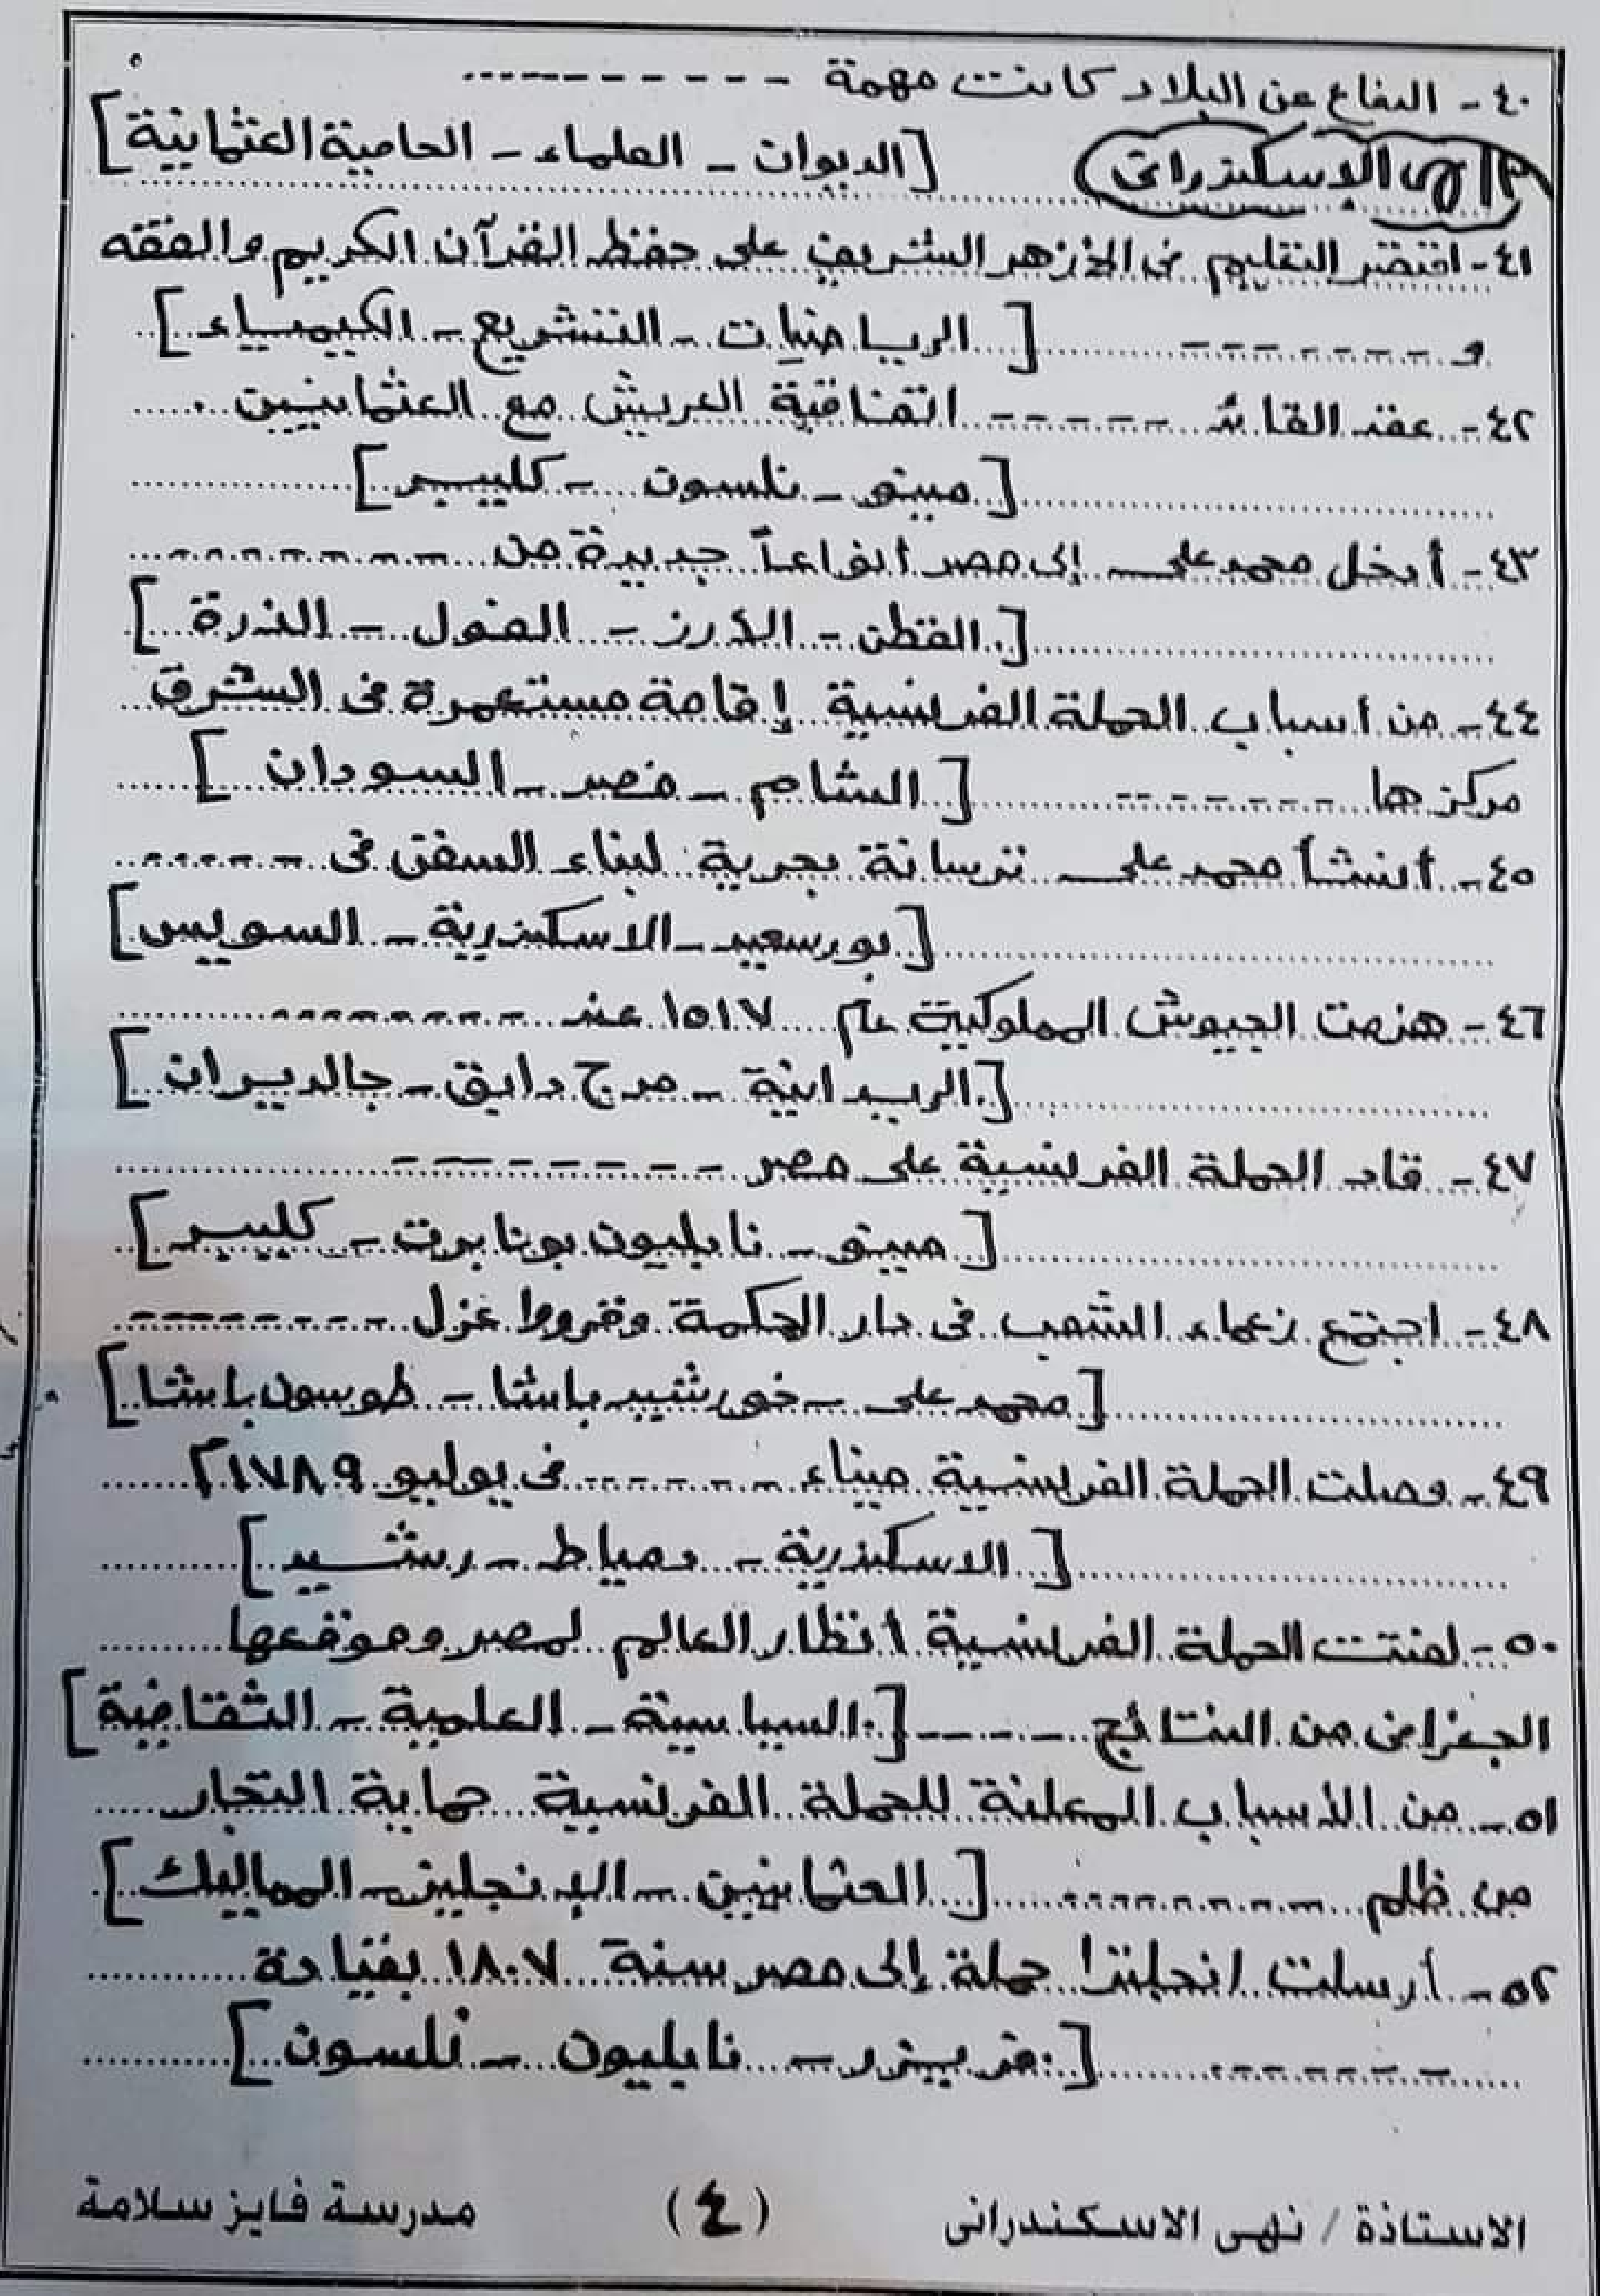 ٤٠- الدفاع عن البلاد كانت مهمة ----------
م/ نهى الاسكندرانى [الديوان - العلماء - الحامية العثمانية]
٤١- اقتصر التعليم فى الأزهر الشريف على حفظ القرآن الكريم والفقه
و ------- [الرياضيات - التشريع - الكيمياء]
٤٢- عقد القائد ------ اتفاقية العريش مع العثمانيين
[مينو - نلسون - كليبر]
٤٣- أدخل محمد على إلى مصر أنواعاً جديدة من --------
[القطن - الأرز - الفول - الذرة]
٤٤- من أسباب الحملة الفرنسية إقامة مستعمرة فى الشرق
مركزها ------- [الشام - مصر - السودان]
٤٥- أنشأ محمد على ترسانة بحرية لبناء السفن فى ------
[بورسعيد - الاسكندرية - السويس]
٤٦- هزمت الجيوش المملوكية عام ١٥١٧ عند --------
[الريدانية - مرج دابق - جالديران]
٤٧- قاد الحملة الفرنسية على مصر --------
[مينو - نابليون بونابرت - كليبر]
٤٨- اجتمع زعماء الشعب فى دار الحكمة وقروط عزل --------
[محمد على - خورشيد باشا - طوسون باشا]
٤٩- وصلت الحملة الفرنسية ميناء ------- فى يوليو ١٧٨٩م
[الاسكندرية - دمياط - رشيد]
٥٠- لفتت الحملة الفرنسية أنظار العالم لمصر وموقعها
الجغرافى من النتائج ----- [السياسية - العلمية - الثقافية]
٥١- من الأسباب المعلنة للحملة الفرنسية حماية التجار
من ظلم --------- [العثمانيين - الإنجليز - المماليك]
٥٢- أرسلت انجلترا حملة إلى مصر سنة ١٨٠٧ بقيادة
------- [فريزر - نابليون - نلسون]
الاستاذة / نهى الاسكندرانى (٤) مدرسة فايز سلامة